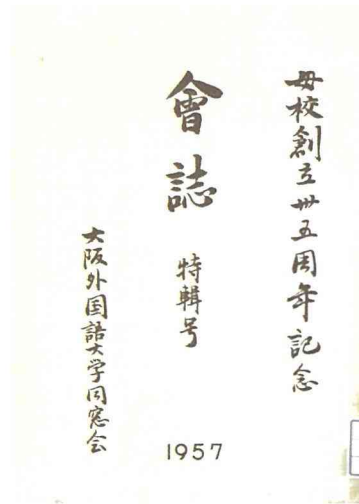 母校創立卅五周年記念
會誌 特輯号
大阪外国語大学同窓会
1957